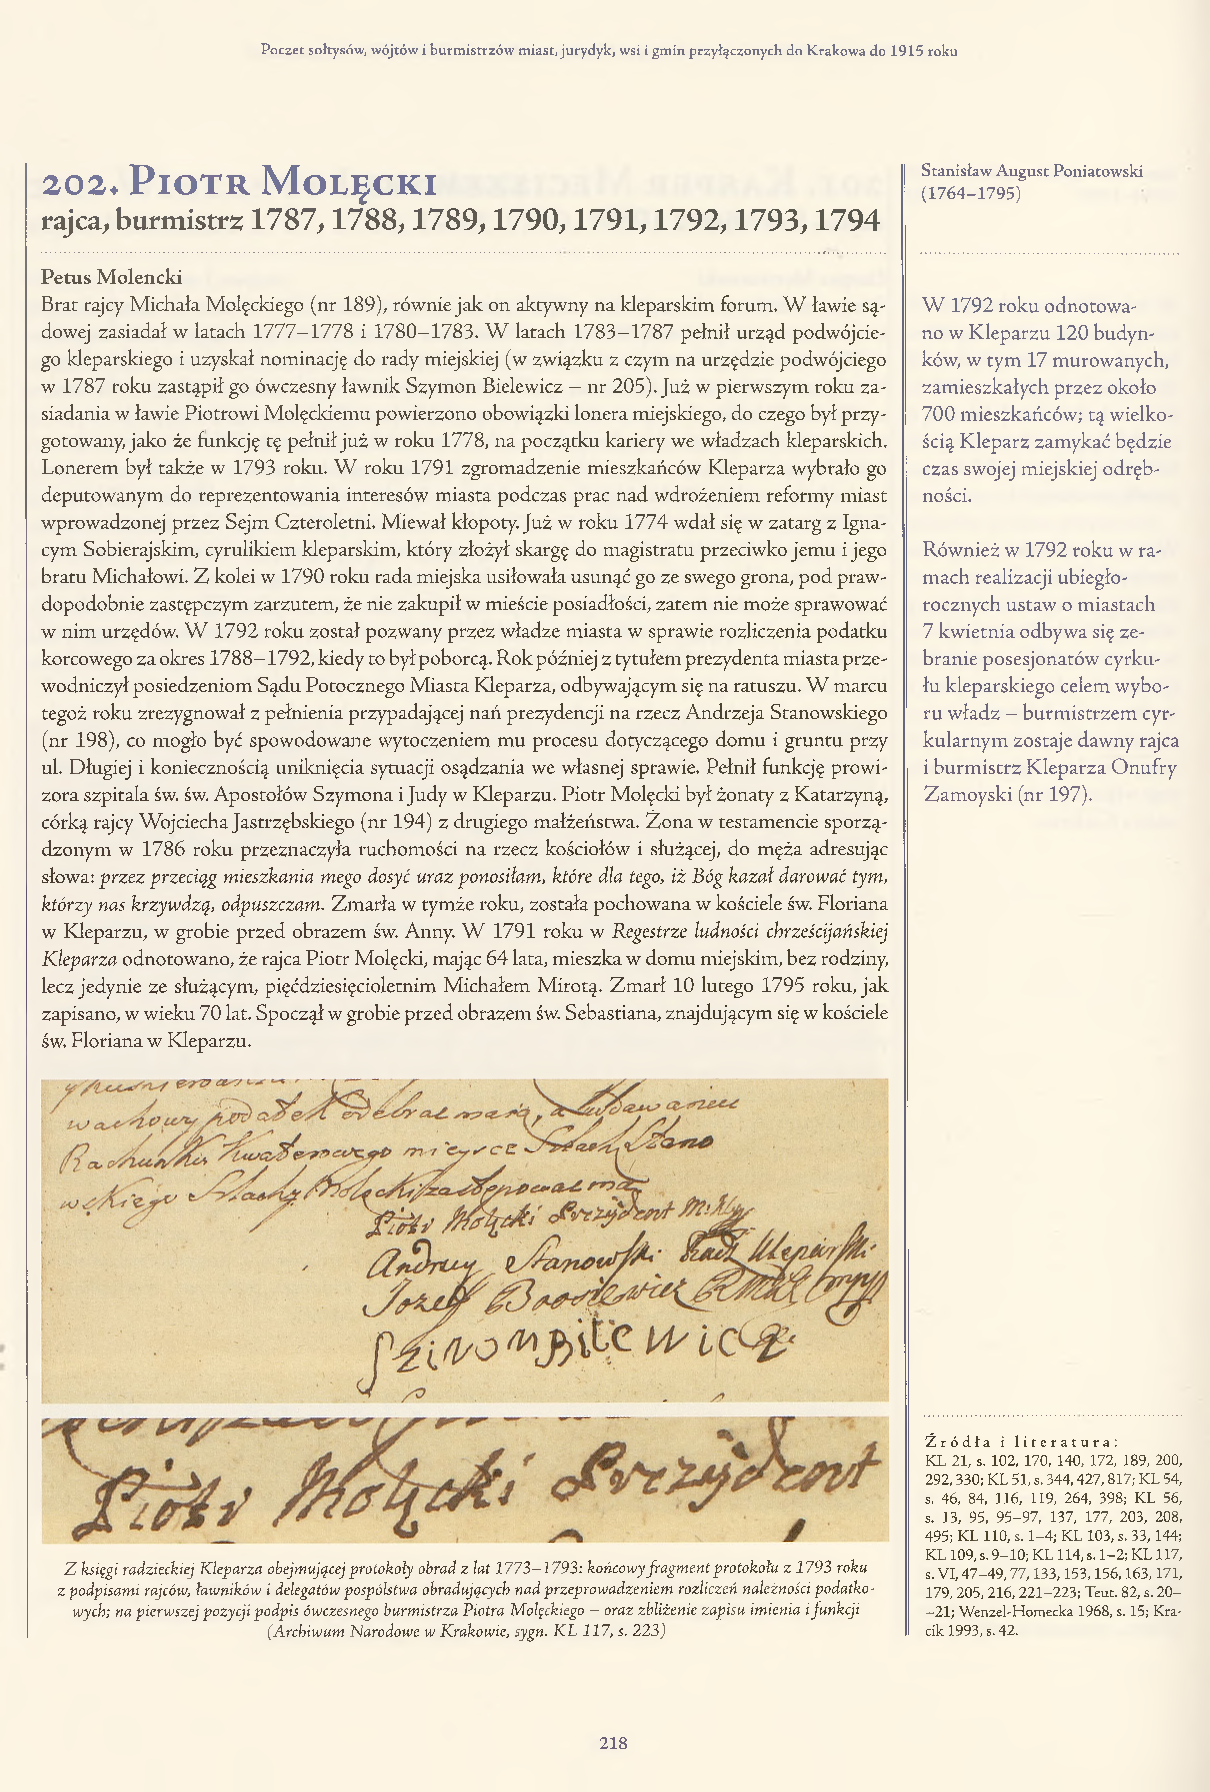 Poczet sołtysów, wójtów i burmistrzów miast, jurydyk, wsi i gmin przyłączonych do Krakowa do 1915 roku
202. Piotr Molęcki
rajca, burmistrz 1787, 1788, 1789, 1790, 1791, 1792, 1793, 1794
Petus Molencki
Brat rajcy Michała Molęckiego (nr 189), równie jak on aktywny na kleparskim forum. W ławie są-
dowej zasiadał w latach 1777–1778 i 1780–1783. W latach 1783–1787 pełnił urząd podwójcie-
go kleparskiego i uzyskał nominację do rady miejskiej (w związku z czym na urzędzie podwójciego
w 1787 roku zastąpił go ówczesny ławnik Szymon Bielewicz – nr 205). Już w pierwszym roku za-
siadania w ławie Piotrowi Molęckiemu powierzono obowiązki lonera miejskiego, do czego był przy-
gotowany, jako że funkcję tę pełnił już w roku 1778, na początku kariery we władzach kleparskich.
Lonerem był także w 1793 roku. W roku 1791 zgromadzenie mieszkańców Kleparza wybrało go
deputowanym do reprezentowania interesów miasta podczas prac nad wdrożeniem reformy miast
wprowadzonej przez Sejm Czteroletni. Miewał kłopoty. Już w roku 1774 wdał się w zatarg z Igna-
cym Sobierajskim, cyrulikiem kleparskim, który złożył skargę do magistratu przeciwko jemu i jego
bratu Michałowi. Z kolei w 1790 roku rada miejska usiłowała usunąć go ze swego grona, pod praw-
dopodobnie zastępczym zarzutem, że nie zakupił w mieście posiadłości, zatem nie może sprawować
w nim urzędów. W 1792 roku został pozwany przez władze miasta w sprawie rozliczenia podatku
korcowego za okres 1788–1792, kiedy to był poborcą. Rok później z tytułem prezydenta miasta prze-
wodniczył posiedzeniom Sądu Potocznego Miasta Kleparza, odbywającym się na ratuszu. W marcu
tegoż roku zrezygnował z pełnienia przypadającej nań prezydencji na rzecz Andrzeja Stanowskiego
(nr 198), co mogło być spowodowane wytoczeniem mu procesu dotyczącego domu i gruntu przy
ul. Długiej i koniecznością uniknięcia sytuacji osądzania we własnej sprawie. Pełnił funkcję prowi-
zora szpitala św. św. Apostołów Szymona i Judy w Kleparzu. Piotr Molęcki był żonaty z Katarzyną,
córką rajcy Wojciecha Jastrzębskiego (nr 194) z drugiego małżeństwa. Żona w testamencie sporzą-
dzonym w 1786 roku przeznaczyła ruchomości na rzecz kościołów i służącej, do męża adresując
słowa: przez przeciąg mieszkania mego dosyć uraz ponosiłam, które dla tego, iż Bóg kazał darować tym,
którzy nas krzywdzą, odpuszczam. Zmarła w tymże roku, została pochowana w kościele św. Floriana
w Kleparzu, w grobie przed obrazem św. Anny. W 1791 roku w Regestrze ludności chrześcijańskiej
Kleparza odnotowano, że rajca Piotr Molęcki, mając 64 lata, mieszka w domu miejskim, bez rodziny,
lecz jedynie ze służącym, pięćdziesięcioletnim Michałem Mirotą. Zmarł 10 lutego 1795 roku, jak
zapisano, w wieku 70 lat. Spoczął w grobie przed obrazem św. Sebastiana, znajdującym się w kościele
św. Floriana w Kleparzu.
podatek odebrać mają, a
Rachunku Kwaterowego mieysce Szlach Stano
wskiego Szlach Molęcki zastępować ma
Piotr Molęcki Prezydent
Andrzey Stanowski Radz Kleparski
Jozeff
Szimon Bilewicz
Piotr Molęcki Prezydent
Z księgi radzieckiej Kleparza obejmującej protokoły obrad z lat 1773–1793: końcowy fragment protokołu z 1793 roku
z podpisami rajców, ławników i delegatów pospólstwa obradujących nad przeprowadzeniem rozliczeń należności podatko-
wych; na pierwszej pozycji podpis ówczesnego burmistrza Piotra Molęckiego – oraz zbliżenie zapisu imienia i funkcji
(Archiwum Narodowe w Krakowie, sygn. KL 117, s. 223)
Stanisław August Poniatowski
(1764–1795)
W 1792 roku odnotowa-
no w Kleparzu 120 budyn-
ków, w tym 17 murowanych,
zamieszkałych przez około
700 mieszkańców; tą wielko-
ścią Kleparz zamykać będzie
czas swojej miejskiej odręb-
ności.
Również w 1792 roku w ra-
mach realizacji ubiegło-
rocznych ustaw o miastach
7 kwietnia odbywa się ze-
branie posesjonatów cyrku-
łu kleparskiego celem wybo-
ru władz – burmistrzem cyr-
kularnym zostaje dawny rajca
i burmistrz Kleparza Onufry
Zamoyski (nr 197).
Źródła i literatura:
KL 21, s. 102, 170, 140, 172, 189, 200,
292, 330; KL 51, s. 344, 427, 817; KL 54,
s. 46, 84, 116, 119, 264, 398; KL 56,
s. 13, 95, 95–97, 137, 177, 203, 208,
495; KL 110, s. 1–4; KL 103, s. 33, 144;
KL 109, s. 9–10; KL 114, s. 1–2; KL 117,
s. VI, 47–49, 77, 133, 153, 156, 163, 171,
179, 205, 216, 221–223; Teut. 82, s. 20–
–21; Wenzel-Homecka 1968, s. 15; Kra-
cik 1993, s. 42.
218